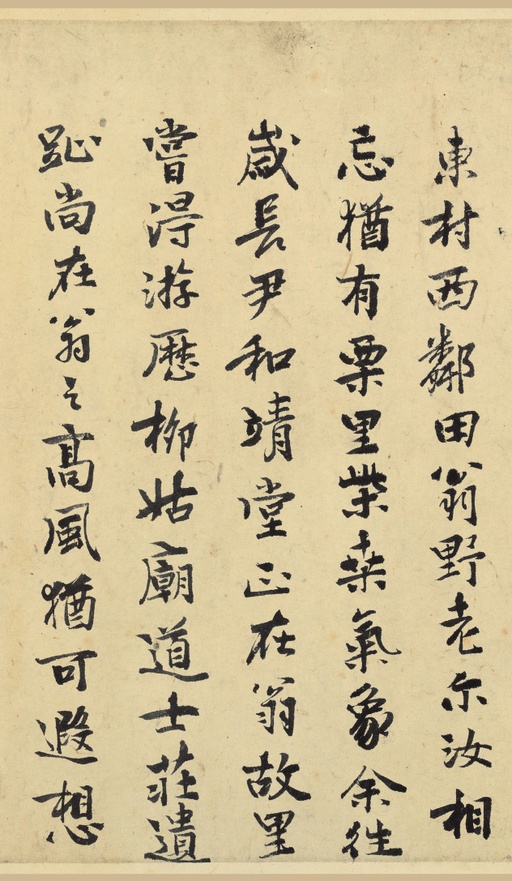 東村西鄰田翁野老尔汝相
忘猶有栗里柴桒氣象余往
歳長尹和靖堂正在翁故里
嘗淂游歷柳姑廟道士莊遺
趾尚在翁之髙風猶可遐想